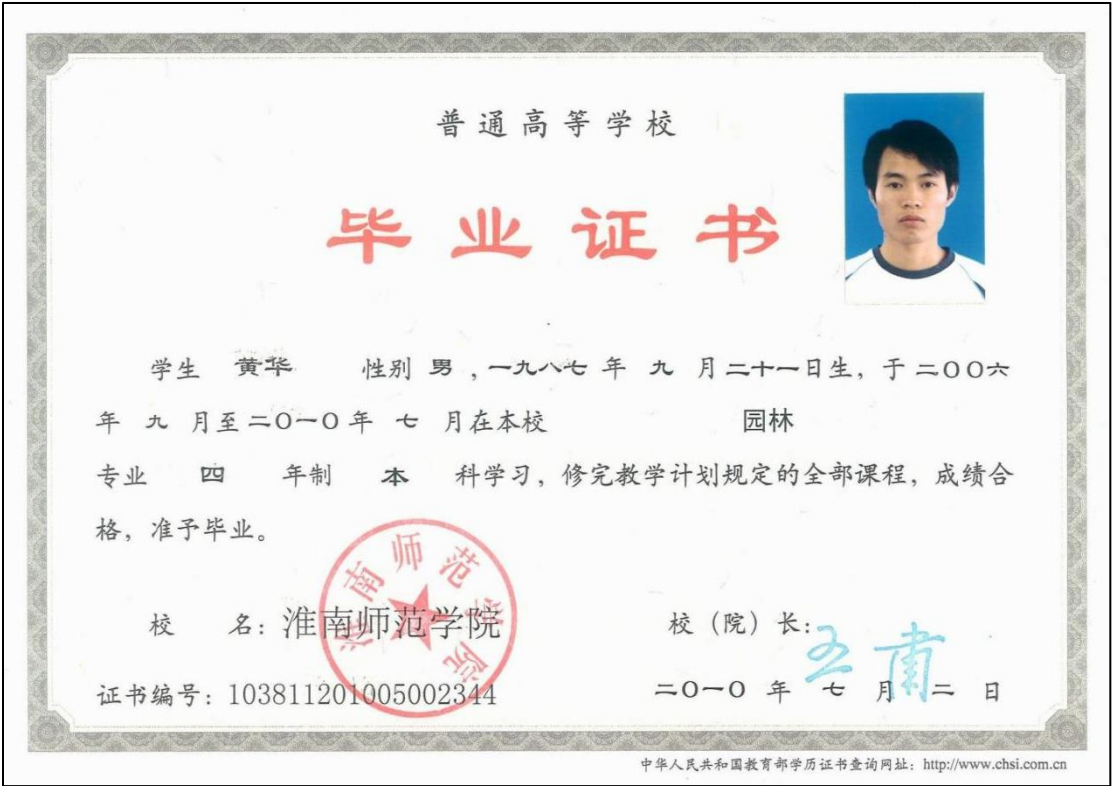 普通高等学校
毕业证书
学生 黄华 性别 男 ，一九八七 年 九 月二十一日生，于 二OO六
年 九 月至 二O一O 年 七 月在本校 园林
专业 四 年制 本 科学习，修完教学计划规定的全部课程，成绩合
格，准予毕业。
淮南师范学院
校 名：淮南师范学院 校（院）长：
证书编号：103811201005002344 二O一O 年 七 月 二 日
中华人民共和国教育部学历证书查询网址：http://www.chsi.com.cn